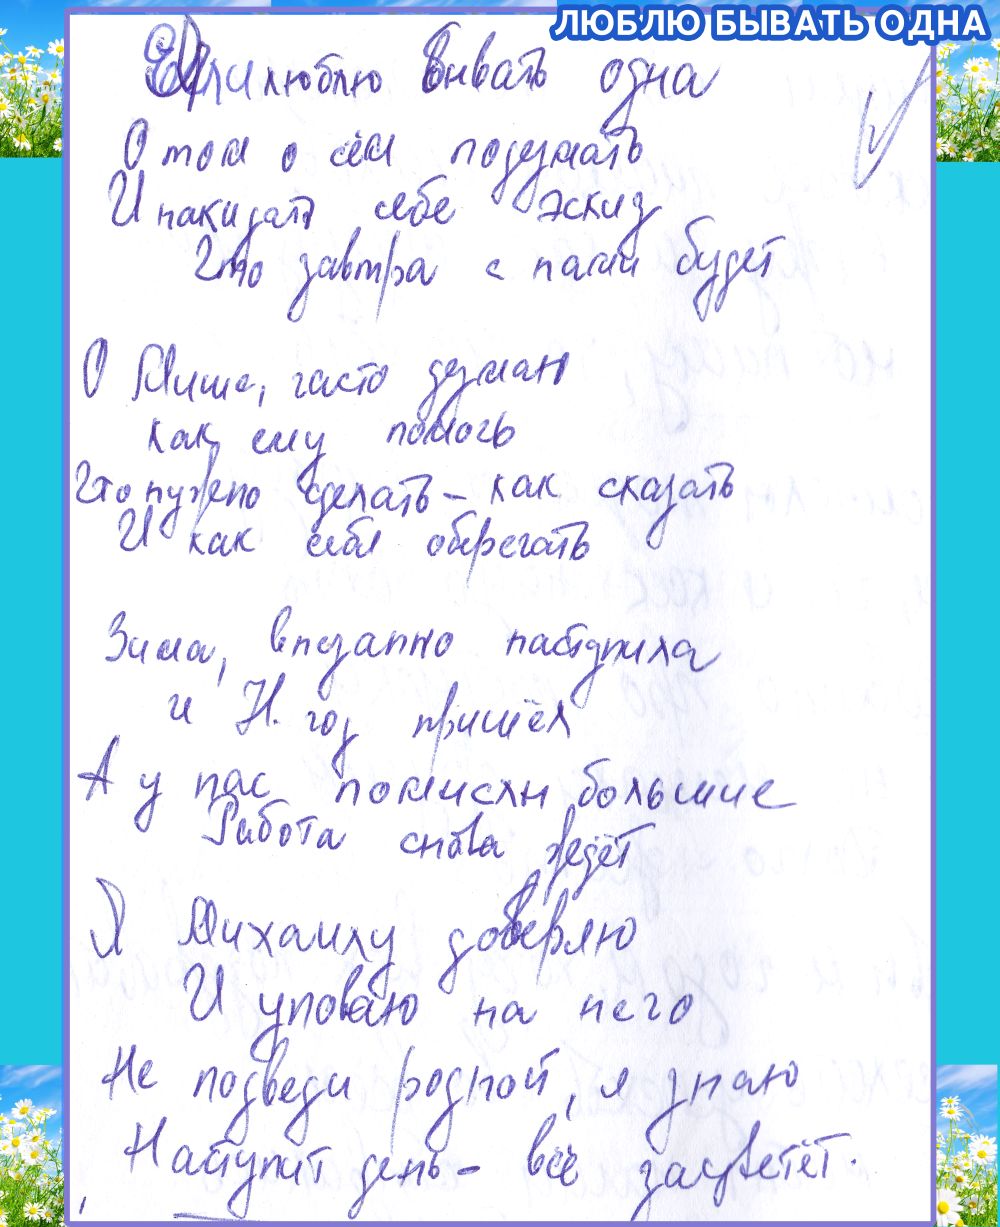 ЛЮБЛЮ БЫВАТЬ ОДНА
люблю бывать одна
О том о сём подумать
И накидать себе эскиз
Что завтра с нами будет
О Мише, часто думаю
как ему помочь
Что нужно сделать – как сказать
И как себя оберегать
Зима, внезапно наступила
и Н. год пришёл
А у нас помыслы большие
Работа снова ждёт
Я Михаилу доверяю
И уповаю на него
Не подведи родной, я знаю
Наступит день – всё зацветёт.